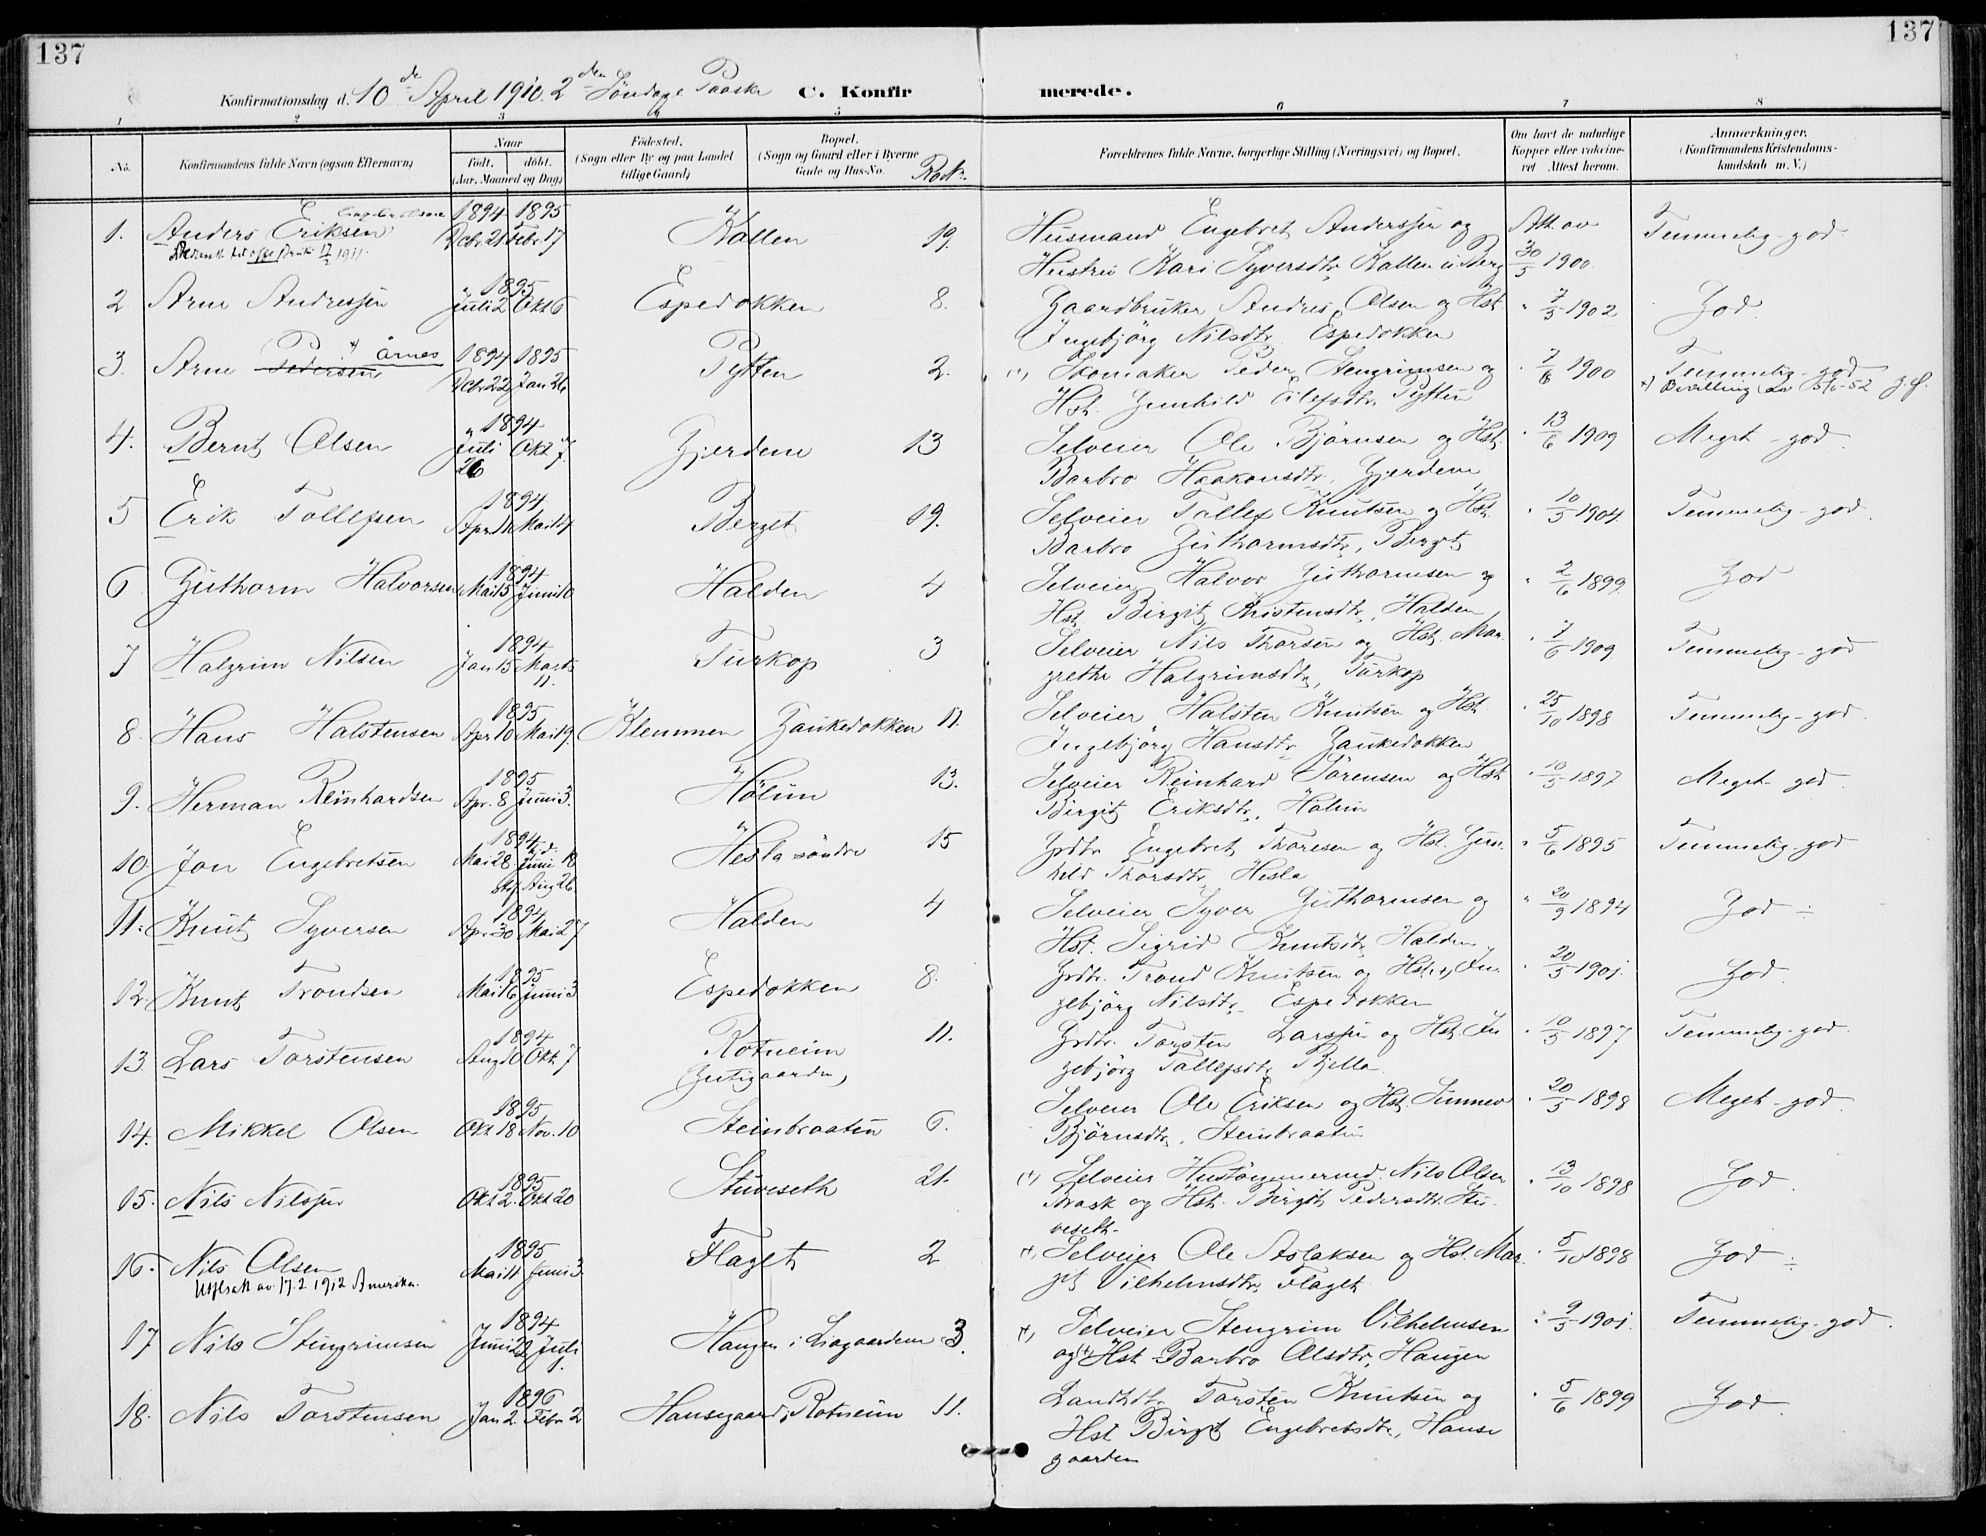 137
137
Konfirmationsdag d. 10de April 1910. 2den Søndag e. Paaske
C. Konfirmerede.
1 2 3 4 5 6 7 8
No.
Konfirmandens fulde Navn (ogsaa Efternavn)
Naar
født. døbt.
(Aar, Maaned og Dag)
Fødested.
(Sogn eller By og paa Landet
tillige Gaard)
Bopæl.
(Sogn og Gaard eller i Byerne
Gade og Hus-No.
Rode.
Forældrenes fulde Navne, borgerlige Stilling (Næringsvei) og Bopæl.
Om havt de naturlige
Kopper eller vakcine-
ret Attest herom.
Anmærkninger.
(Konfirmandens Kristendoms-
kundskab m. V.)
1. Anders Eriksen Engebretsen 1894 Dcbr 21 1895 Febr 17 Kallen 19. Husmand Engebret Anderssen og Att. av 30/5 1900 Temmelig god.
Hustru Kari Syversdtr Kallen u. Berg
2 Arne Andressen " Juli 2 1895 Okt 6 Espedokken 8. Gaardbruker Andres Olsen og Hst. " 7/5 1902 God.
Ingebjörg Nilsdtr Espedokken
3. Arne P. Pedersen x) Årnes 1894 Dcbr 22 1895 Jan 26 Pytten 2. Skomaker Peder Stengrimsen og 1900 Temmelig god
Hst. Gunhild Eilefsdtr Pytten x) Bevilling
4. Bernt Olsen " Juli 26 1894 Okt 7. Gjerdene 13 Selveier Ole Björnsen og Hst. " 13/6 1909 Meget god.
Barbro Haakonsdtr, Gjerdene
5 Erik Tollefsen 1894 Apr. 14 Mai 14 Berget 19. Selveier Tollef Knutsen og Hst. " 10/5 1904 Temmelig god
Barbro Guthormsdtr, Berget
6 Guthorm Halvorsen 1894 Mai 15 Juni 10 Halden 4 Selveier Halvor Guthormsen og " 2/6 1899 God
Hst. Birgit Kristensdtr, Halden
7 Halgrim Nilsen 1894 Jan 15 Marts 11. Turkop 3 Selveier Nils Thorsen og Hst. Mar- " 7/6 1909. Temmelig god
grethe Halgrimsdtr, Turkop
8. Hans Halstensen 1895 Apr 10 Mai 19. Klemmen Gaukedokken 11. Selveier Halsten Knutsen og Hst. " 25/10 1898 Temmelig god.
Ingebjörg Hansdtr Gaukedokken
9. Herman Reinhardsen 1895 Apr. 8 Juni 3. Hölim 13. Selveier Reinhard Sörensen og Hst " 10/5 1897 Meget god
Birgit Eriksdtr, Hölim
10 Jon Engebretsen 1894 Mai 28. Juni 18 Aug 26. Hesla söndre 15 Grdbr. Engebret Thoresen og Hst. Gun- " 5/6 1895 Temmelig god
hild Thorsdtr, Hesla
11. Knut Syversen 1894 Apr. 30 Mai 27 Halden 4 Selveier Syver Guthormsen og " 20/9 1894 God ÷
Hst. Sigrid Knutsdtr Halden
12. Knut Trondsen 1895 Mai 16 Juni 3 Espedokken 8. Grdbr. Trond Knutsen og Hst. In- " 20/5 1901. God.
gebjörg Nilsdtr Espedokken
13. Lars Torstensen 1894 Aug 10 Okt. 7 Rotneim 11. Grdbr. Torsten Larssen og Hst. In- " 10/5 1897 Temmelig god.
gebjörg Tollefsdtr
14. Mikkel Olsen 1895 Okt. 18 Nov. 10 Steinbraaten 6. Selveier Ole Eriksen og Hst. Sunnev " 20/5 1898 Meget god.
Björnsdtr, Steinbraaten
15. Nils Nilssen 1895 Okt. 2. Okt 20 Stuveseth 21. Selveier Hustömmermand Nils Olsen " 13/10 1898 God.
Brask og Hst. Birgit Pedersdtr. Stu-
veseth.
16. Nils Olsen 1895 Mai 4 Juni 3. Flaget 2 Selveier Ole Aslaksen og Hst. Mar- " 5/10 1898 God ÷
Utflsatt av 17.2.1912 Amerika. git Vilhelmsdtr Flaget
17 Nils Stengrimsen 1894 Juni 22 Juli 1. Haugen i Liagaardene 3. Selveier Stengrim Vilhelmsen " 9/5 1901. Temmelig god.
og Hst. Barbro Olsdtr, Haugen
18. Nils Torstensen 1896 Jan 2. Febr 2 Hansegaard, Rotneim 11. Landhdlr. Torsten Knutsen og " 5/6 1899 God.
Hst Birgit Engebretsdtr., Hanse
gaarden